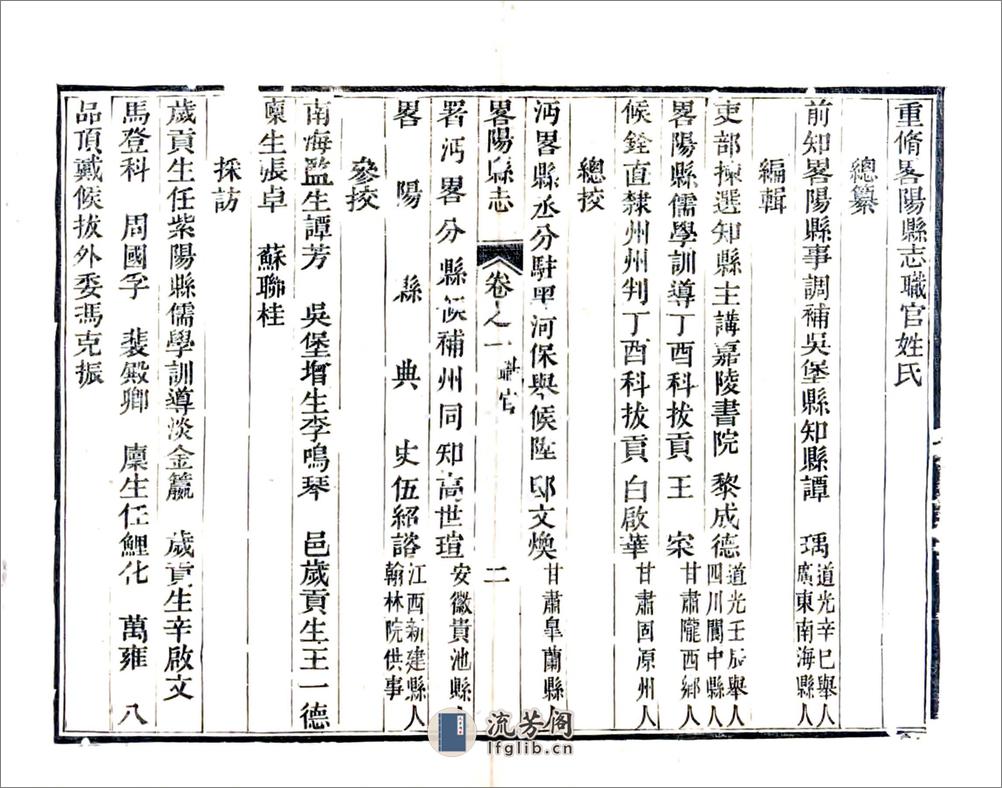 重脩畧陽縣志職官姓氏
總纂
前知畧陽縣事調補吳堡縣知縣譚 瑀 道光辛巳舉人 廣東南海縣人
編輯
吏部揀選知縣主講嘉陵書院 黎成德 道光壬辰舉人 四川閬中縣人
畧陽縣儒學訓導丁酉科拔貢 王 寀 甘肅隴西鄉人
候銓直隸州州判丁酉科拔貢 白啟華 甘肅固原州人
總挍
沔畧縣丞分駐黑河保舉候陞 邸文煥 甘肅皐蘭縣人
畧陽縣志 卷之一 職官 二
署沔畧分縣候補州同知高世瑄 安徽貴池縣人
畧陽縣典史伍紹諮 江西新建縣人 翰林院供事
參挍
南海監生譚芳 吳堡增生李鳴琴 邑歲貢生王一德
廩生張卓 蘇聯桂
採訪
歲貢生任紫陽縣儒學訓導淡金籯 歲貢生辛啟文
馬登科 周國孚 裴殿卿 廩生任鯉化 萬雍 八
品頂戴候拔外委瑪克振
流芳阁
lfglib.cn